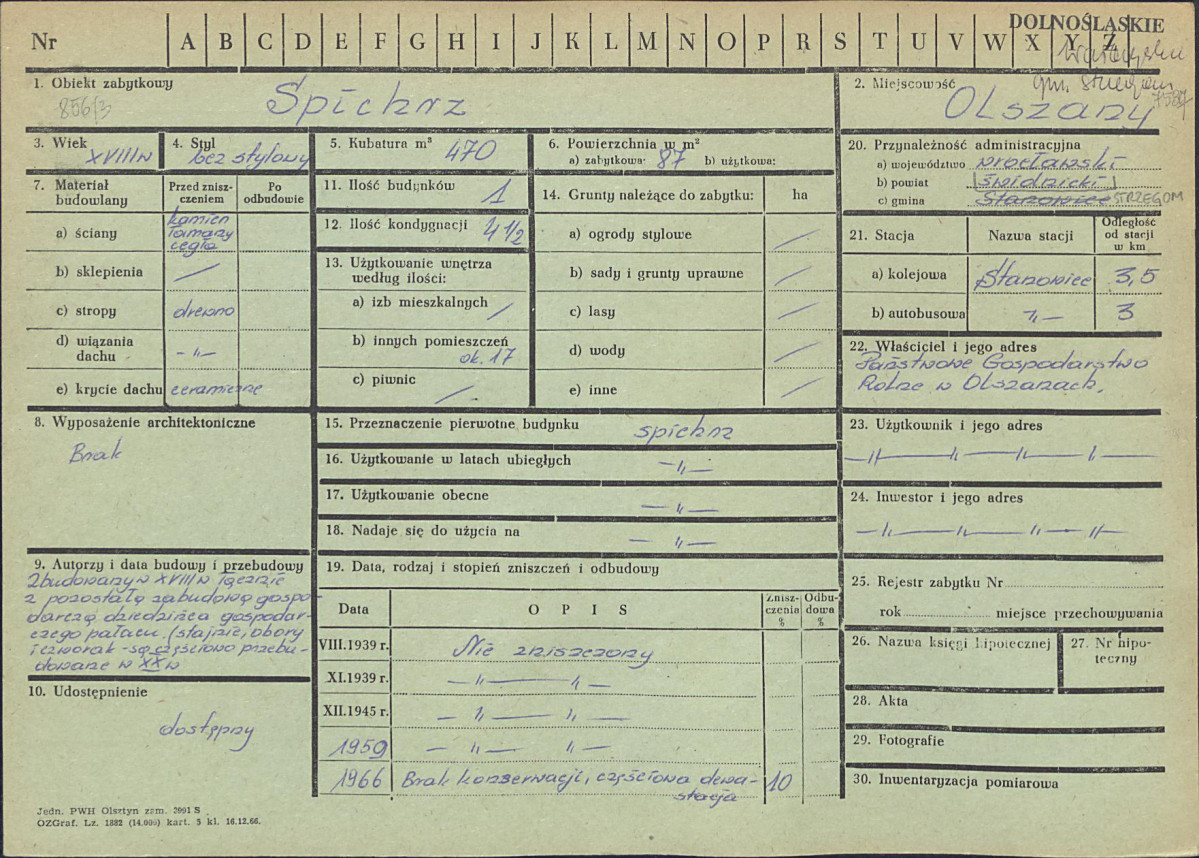 Nr A B C D E F G H I J K L M N O P R S T U V W X Y Z
DOLNOŚLĄSKIE
gm. Strzegom
7587
1. Obiekt zabytkowy
856/3
Spichrz
2. Miejscowość
Olszany
3. Wiek
XVIII w
4. Styl
bez stylowy
5. Kubatura m³
470
6. Powierzchnia w m²
a) zabytkowa: 87 b) użytkowa:
7. Materiał budowlany
Przed zniszczeniem
Po odbudowie
a) ściany
kamień
łamany
cegła
b) sklepienia /
c) stropy drewno
d) wiązania
dachu - „ -
e) krycie dachu ceramiczne
8. Wyposażenie architektoniczne
Brak
9. Autorzy i data budowy i przebudowy
Zbudowany w XVIII w łącznie
z pozostałą zabudową gospo-
darczą dziedzińca gospodar-
czego pałacu. (stajnie, obory
i czworak - są częściowo przebu-
dowane w XX w
10. Udostępnienie
dostępny
11. Ilość budynków
1
12. Ilość kondygnacji
4 1/2
13. Użytkowanie wnętrza
według ilości:
a) izb mieszkalnych /
b) innych pomieszczeń
ok. 17
c) piwnic /
14. Grunty należące do zabytku: ha
a) ogrody stylowe /
b) sady i grunty uprawne /
c) lasy /
d) wody /
e) inne /
15. Przeznaczenie pierwotne budynku spichrz
16. Użytkowanie w latach ubiegłych - „ -
17. Użytkowanie obecne - „ -
18. Nadaje się do użycia na - „ -
19. Data, rodzaj i stopień zniszczeń i odbudowy
Data O P I S Zniszczenia % Odbudowa %
VIII.1939 r. Nie zniszczony
XI.1939 r. - „ - „ -
XII.1945 r. - „ - „ -
1959 - „ - „ -
1966 Brak konserwacji, częściowa dewa- 10
stacja
20. Przynależność administracyjna
a) województwo wrocławski
b) powiat świdnicki
c) gmina Stanowice STRZEGOM
21. Stacja Nazwa stacji Odległość
od stacji
w km
a) kolejowa Stanowice 3,5
b) autobusowa - „ - 3
22. Właściciel i jego adres
Państwowe Gospodarstwo
Rolne w Olszanach.
23. Użytkownik i jego adres
- „ - „ - „ - „ -
24. Inwestor i jego adres
- „ - „ - „ - „ -
25. Rejestr zabytku Nr
rok miejsce przechowywania
26. Nazwa księgi hipotecznej
27. Nr hipo-
teczny
28. Akta
29. Fotografie
30. Inwentaryzacja pomiarowa
Jedn. PWH Olsztyn zam. 2091 S
OZGraf. Lz. 1882 (14.000) kart. 5 kl. 16.12.66.